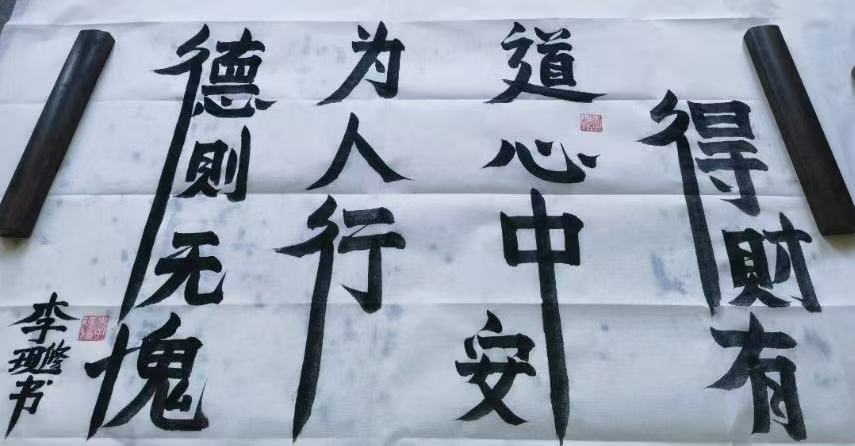 得財有
道心中安
为人行
德则无愧
李修书